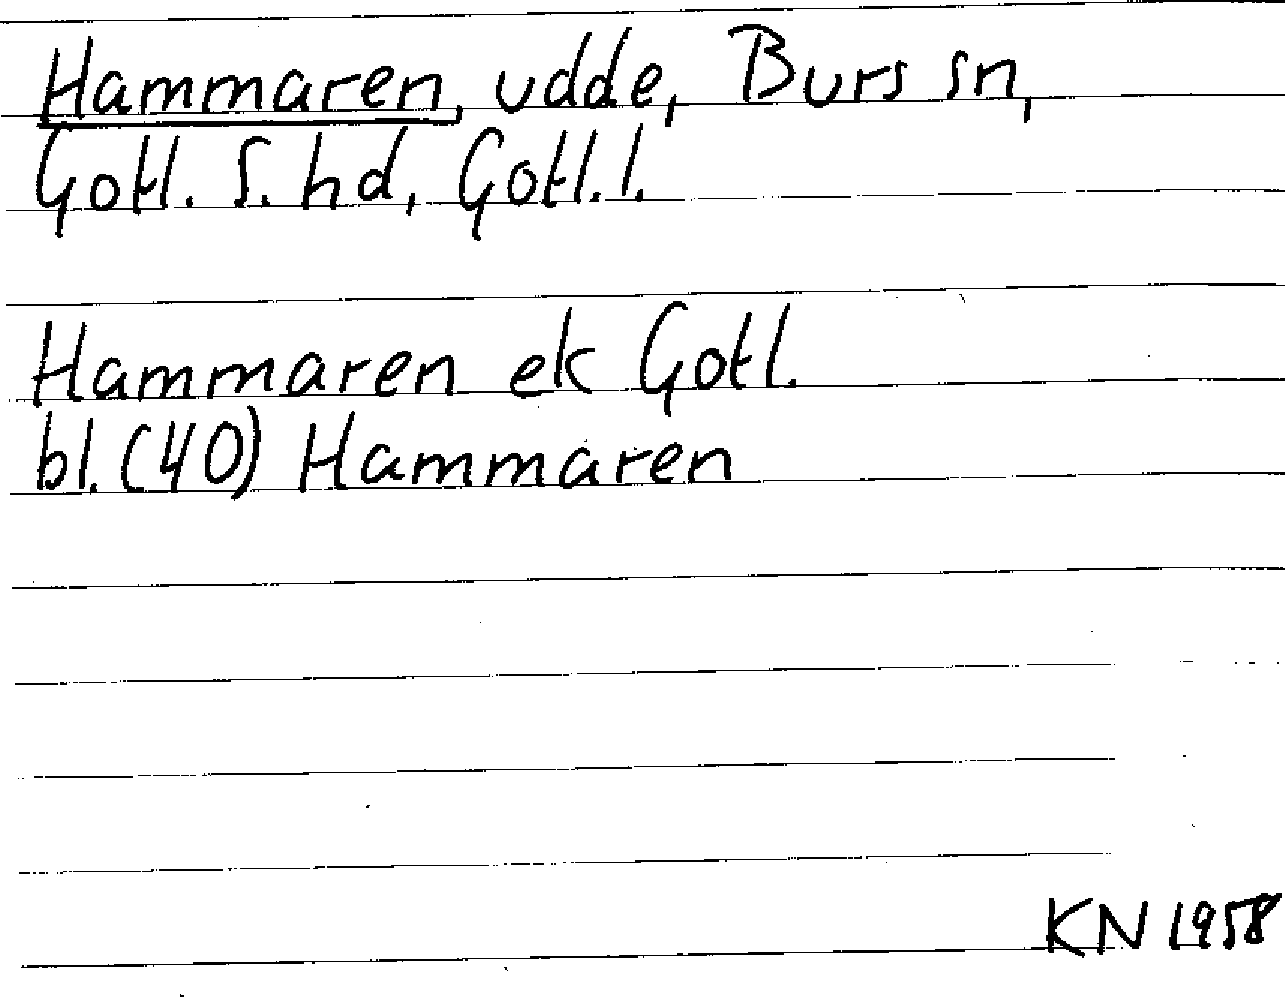 Hammaren, udde, Burs sn,
Gotl. S. hd, Gotl. l.
Hammaren ek Gotl.
bl. (40) Hammaren
KN 1958